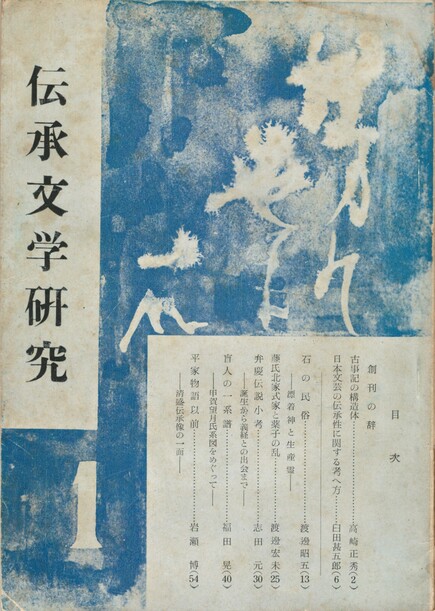 伝承文学研究
1
目次
創刊の辞
古事記の構造体…………高崎正秀(2)
日本文芸の伝承性に関する考へ方……臼田甚五郎(6)
石の民俗…………渡邊昭五(13)
――漂着神と生産霊――
藤氏北家式家と薬子の乱……渡邊宏未(25)
弁慶伝説小考…………志田元(30)
――誕生から義経との出会まで――
盲人の一系譜…………福田晃(40)
――甲賀望月氏系図をめぐって――
平家物語以前…………岩瀬博(54)
――清盛伝承像の一面――